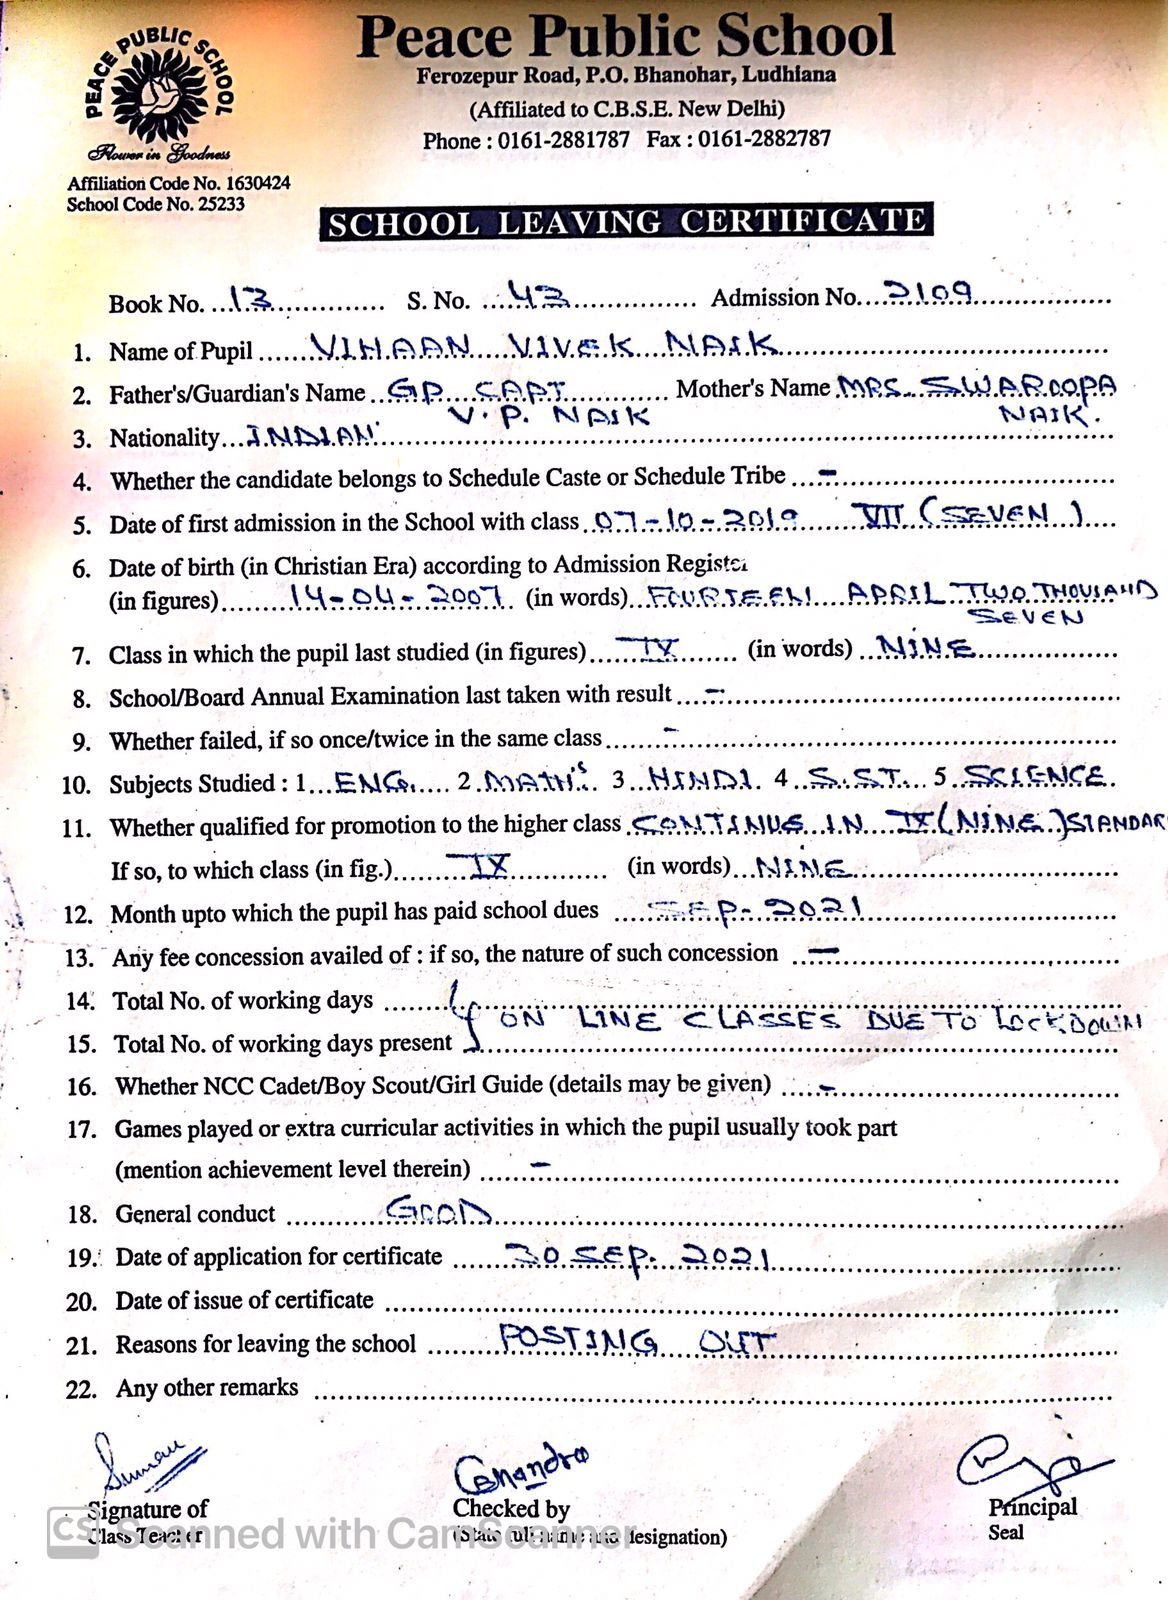 PEACE PUBLIC SCHOOL
Flower in Goodness
Affiliation Code No. 1630424
School Code No. 25233
Peace Public School
Ferozepur Road, P.O. Bhanohar, Ludhiana
(Affiliated to C.B.S.E. New Delhi)
Phone : 0161-2881787 Fax : 0161-2882787
SCHOOL LEAVING CERTIFICATE
Book No. 13 S. No. 43 Admission No. 2109
1. Name of Pupil VIHAAN VIVEK NAIK
2. Father's/Guardian's Name GP CAPT Mother's Name MRS. SWAROOPA
V.P. NAIK NAIK.
3. Nationality INDIAN
4. Whether the candidate belongs to Schedule Caste or Schedule Tribe -
5. Date of first admission in the School with class 07-10-2019 VII (SEVEN)
6. Date of birth (in Christian Era) according to Admission Register
(in figures) 14-04-2007 (in words) FOURTEEN APRIL TWO THOUSAND
SEVEN
7. Class in which the pupil last studied (in figures) IX (in words) NINE
8. School/Board Annual Examination last taken with result -
9. Whether failed, if so once/twice in the same class -
10. Subjects Studied : 1 ENG. 2 MATH'S 3 HINDI 4 S.ST. 5 SCIENCE
11. Whether qualified for promotion to the higher class CONTINUS IN IX (NINE) STANDAR
If so, to which class (in fig.) IX (in words) NINE
12. Month upto which the pupil has paid school dues SEP-2021
13. Any fee concession availed of : if so, the nature of such concession -
14. Total No. of working days
ON LINE CLASSES DUE TO LOCKDOWN
15. Total No. of working days present
16. Whether NCC Cadet/Boy Scout/Girl Guide (details may be given) -
17. Games played or extra curricular activities in which the pupil usually took part
(mention achievement level therein) -
18. General conduct GOOD
19. Date of application for certificate 30 SEP. 2021
20. Date of issue of certificate
21. Reasons for leaving the school POSTING OUT
22. Any other remarks
Suman
Signature of Checked by Principal
Class Teacher (State full name and designation) Seal
CS Scanned with CamScanner